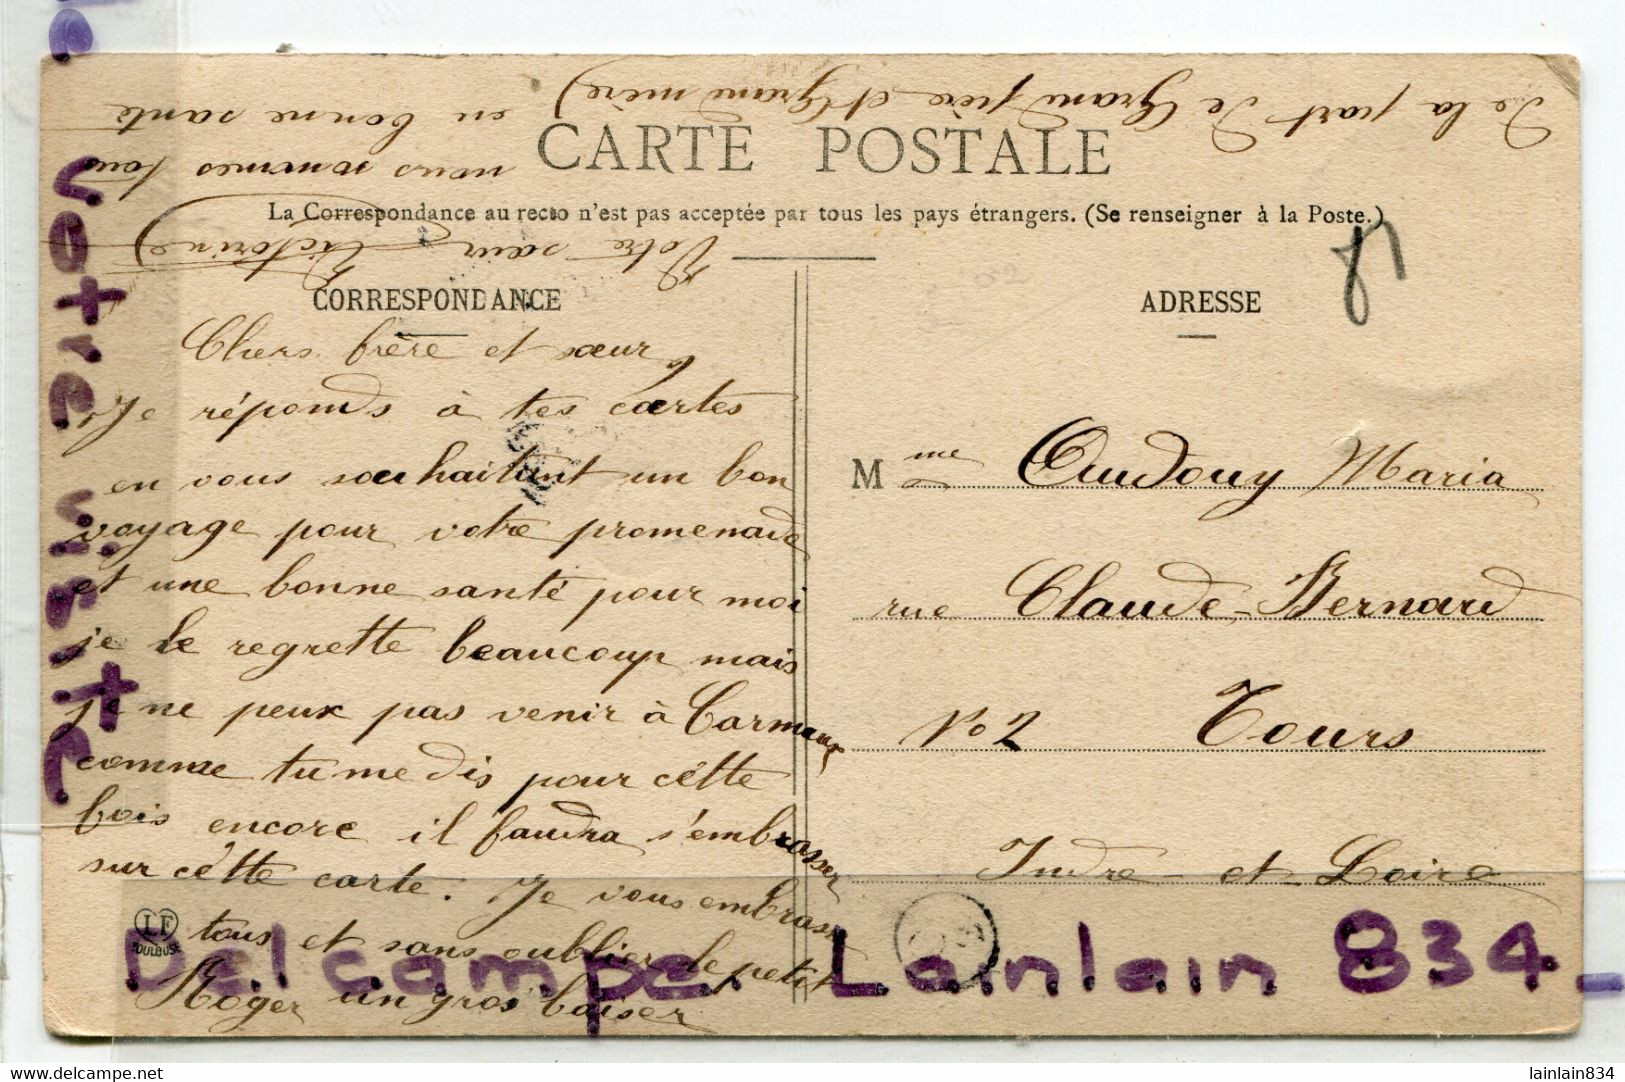 CARTE POSTALE
La Correspondance au recto n'est pas acceptée par tous les pays étrangers. (Se renseigner à la Poste.)
CORRESPONDANCE
Chers frère et sœur
Je réponds à tes cartes
en vous souhaitant un bon
voyage pour votre promenade
et une bonne santé pour moi
je le regrette beaucoup mais
je ne peux pas venir à Carmaux
comme tu me dis pour cètte
fois encore il faudra s'embrasser
sur cètte carte. Je vous embrasse
tous et sans oublier le petit
Roger un gros baiser
nous sommes tous
en bonne santé
Votre sœur Victorine)
De la part de Grand père et Grand mère)
ADRESSE
81
Mme Audouy Maria
rue Claude-Bernard
No 2 Tours
Indre-et-Loire
LF
TOULOUSE
votre visite
Delcampe Lainlain 834-
https://www.delcampe.net
lainlain834